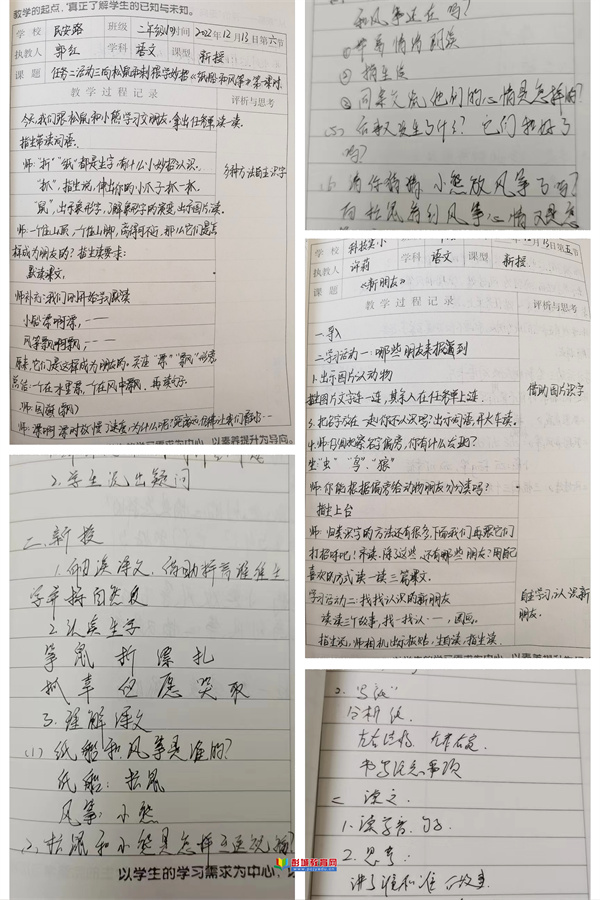 教学的起点，真正了解学生的已知与未知。
学校 民安路 班级 二年级 时间 2022年12月13日第六节
执教人 郭红 学科 语文 课型 新授
课题 任务二活动三向松鼠和刺猬学妙招《纸船和风筝》第一课时
教学过程记录 评析与思考
今天我们跟松鼠和小熊学习交朋友，拿出任务单读一读。
指生带读词语。
师:"折""纸"都是生字，有什么小妙招认识。
多种方法自主识字
"抓"，指生说，伸出你的小爪子抓一抓。
"鼠"，出示象形字，了解象形字的演变，出示图片读。
师:一个住山顶，一个住山脚，
样成为朋友的？指生读要求:
默读课文。
师补充:我们刚开始学习默读
小船漂啊漂，……
风筝飘啊飘，……
原来，它们是这样成为朋友的，关注"漂""飘"
总结:一个在水里漂，一个在风中飘，再读句子。
以素养提升为导向。
2.学生说出疑问
二、新授
1.
字并读自然段
2.认读生字
筝 鼠 折 漂 扎
抓 幸 但 愿 哭 取
3.理解课文
(1)纸船和风筝是谁的？
纸船：松鼠
风筝：小熊
2、松鼠和小熊是怎样
以学生的学习需求为中心，以
彭城教育网
和风筝还在吗？
①带着情绪朗读
②指生读
③同桌交流他们的心情是怎样的？
(5)后来又发生了什么？它们和好了
吗？
(6)请你猜猜，小熊放风筝了吗？
而松鼠看到风筝心情又是怎
学校 科技实小 语文 12月13日第五节
执教人 许莉 学科 语文 课型 新授
课题 《新朋友》
教学过程记录 评析与思考
一.导入
二.学习活动一:哪些朋友来报到
1.出示图片认动物
指生图片文字连一连，其余人在任务单上连.
借助图片识字
3.把名字放在一起，你还认识吗？出示词语，开火车读。
生"虫"、"鸟"、"狼"
师:你能根据偏旁给动物朋友分分类吗？
指生上台
师:归类识字的方法还有很多，下面我们再跟它们
打招呼吧！齐读.除了这些，还有哪些朋友？用自己
喜欢的方式读一读三篇课文.
学习活动二:找找认识的新朋友
自主学习，认识新
朋友.
读读三个故事，找一找认一……，圈画.
指生说，师相机出示板贴，生自读，指生读.
2.写法
分析
左右结构、左窄右宽
书写注意事项
二 课文.
1.读字音、句子.
2.思考:
讲了谁和谁的故事.